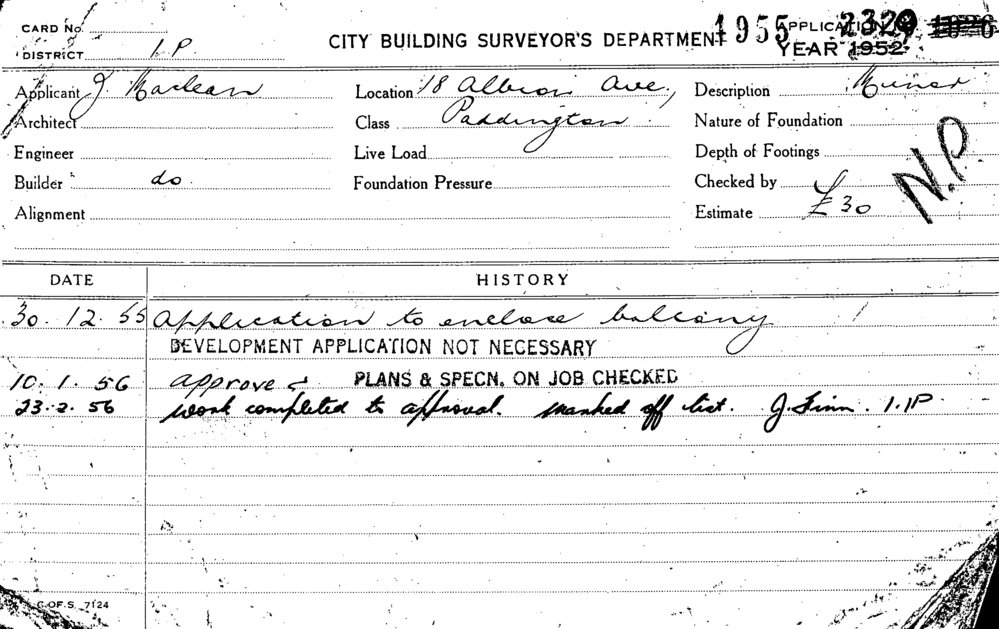 CARD No.
DISTRICT 1.P
CITY BUILDING SURVEYOR'S DEPARTMENT
1955 APPLICATION 2329
YEAR 1952
Applicant J. Maclean
Location 18 Albion Ave.,
Description Minor
Architect
Class Paddington
Nature of Foundation
Engineer
Live Load
Depth of Footings
Builder do.
Foundation Pressure
Checked by
Alignment
Estimate £30
N.P
DATE HISTORY
30.12.55 Application to enclose balcony
DEVELOPMENT APPLICATION NOT NECESSARY
10.1.56 approved PLANS & SPECN. ON JOB CHECKED
23.2.56 work completed to approval. marked off list. J. Finn. 1.P.
C.OF.S. 7124